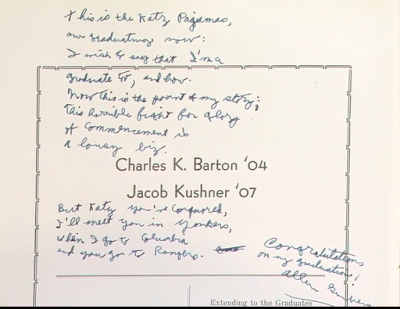 This is the Katz Pajamas,
our graduating now:
I wish to say that I'm a
graduate to, and how.
Now this is the point of my story;
this horrible fight for glory
of Commencement is
a lousy biz.
Charles K. Barton '04
Jacob Kushner '07
But Katzy you've Conquered,
I'll meet you in Yonkers,
when I go to Columbia
and you go to Rutgers.
Congratulations
on my graduation!
Allen
Extending to the Graduates